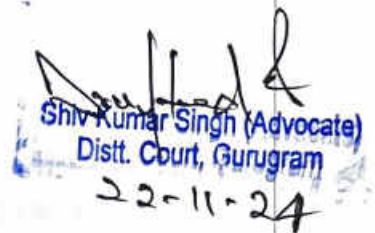 Shiv Kumar Singh (Advocate)
Distt. Court, Gurugram
22-11-24